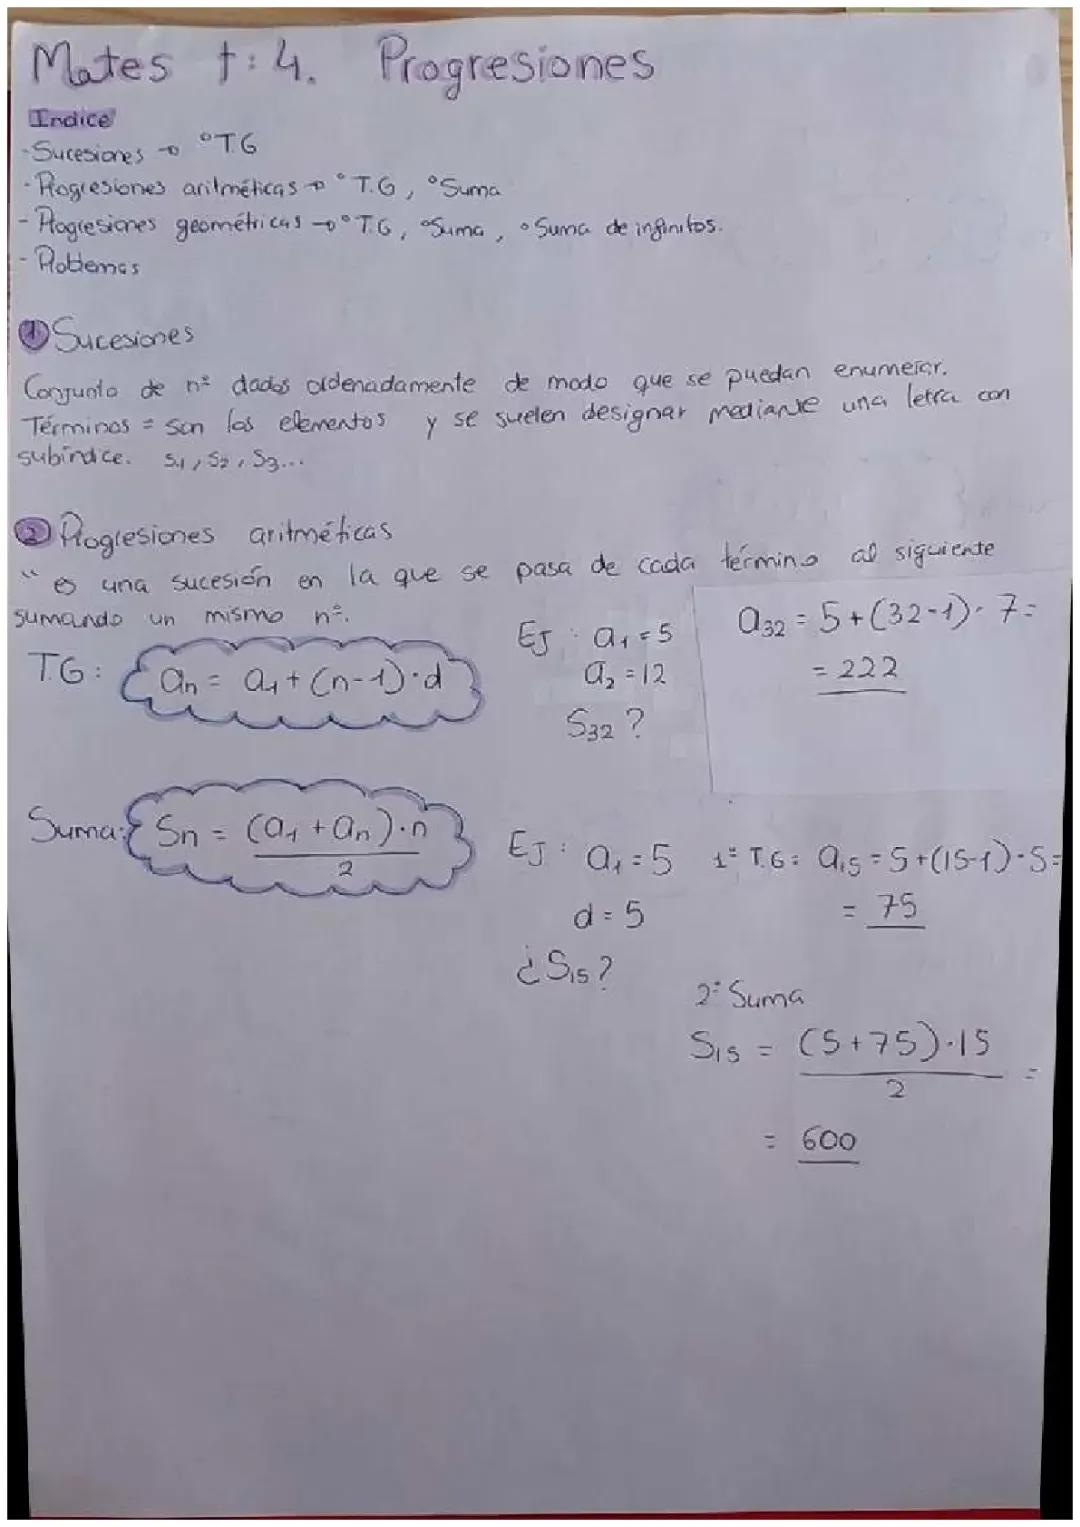 Mates t:4. Progresiones
Indice
- Sucesiones → ° T.G
- Progresiones aritméticas → ° T.G, ° Suma
- Progresiones geométricas → ° T.G, ° Suma, ° Suma de infinitos.
- Problemas
① Sucesiones
Conjunto de nº dados ordenadamente de modo que se puedan enumerar.
Términos = son los elementos y se suelen designar mediante una letra con
subíndice. S1, S2, S3...
② Progresiones aritméticas
" es una sucesión en la que se pasa de cada término al siguiente
sumando un mismo nº.
T.G: an = a1 + (n-1)·d
EJ: a1 = 5
a2 = 12
S32?
a32 = 5 + (32-1)· 7 =
= 222
Suma: Sn = (a1 + an)·n / 2
EJ: a1 = 5
d = 5
¿S15?
1º T.G: a15 = 5 + (15-1)·5 =
= 75
2º Suma
S15 = (5+75)·15 / 2 =
= 600